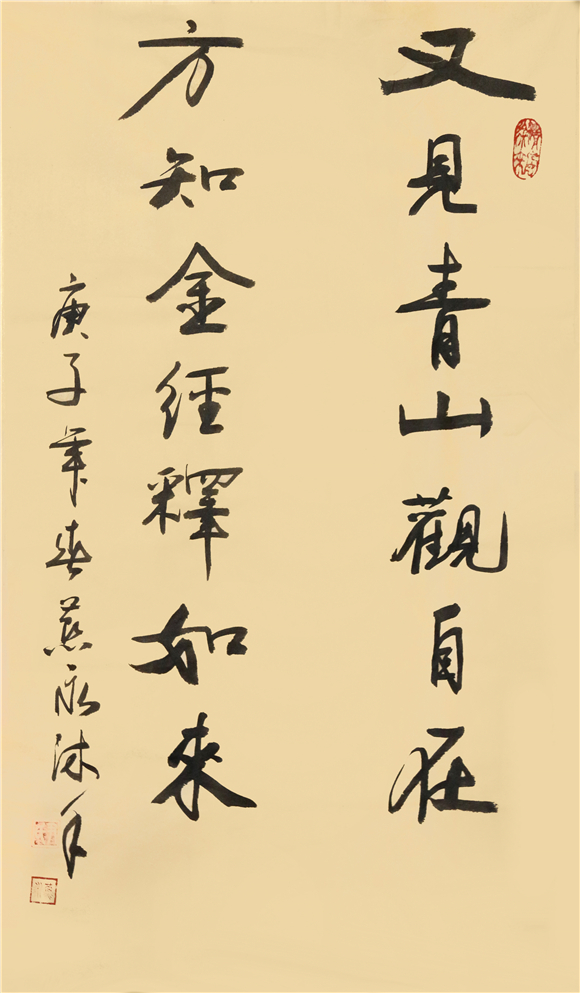 又見青山觀自在
方知金經釋如來
庚子年春沐手